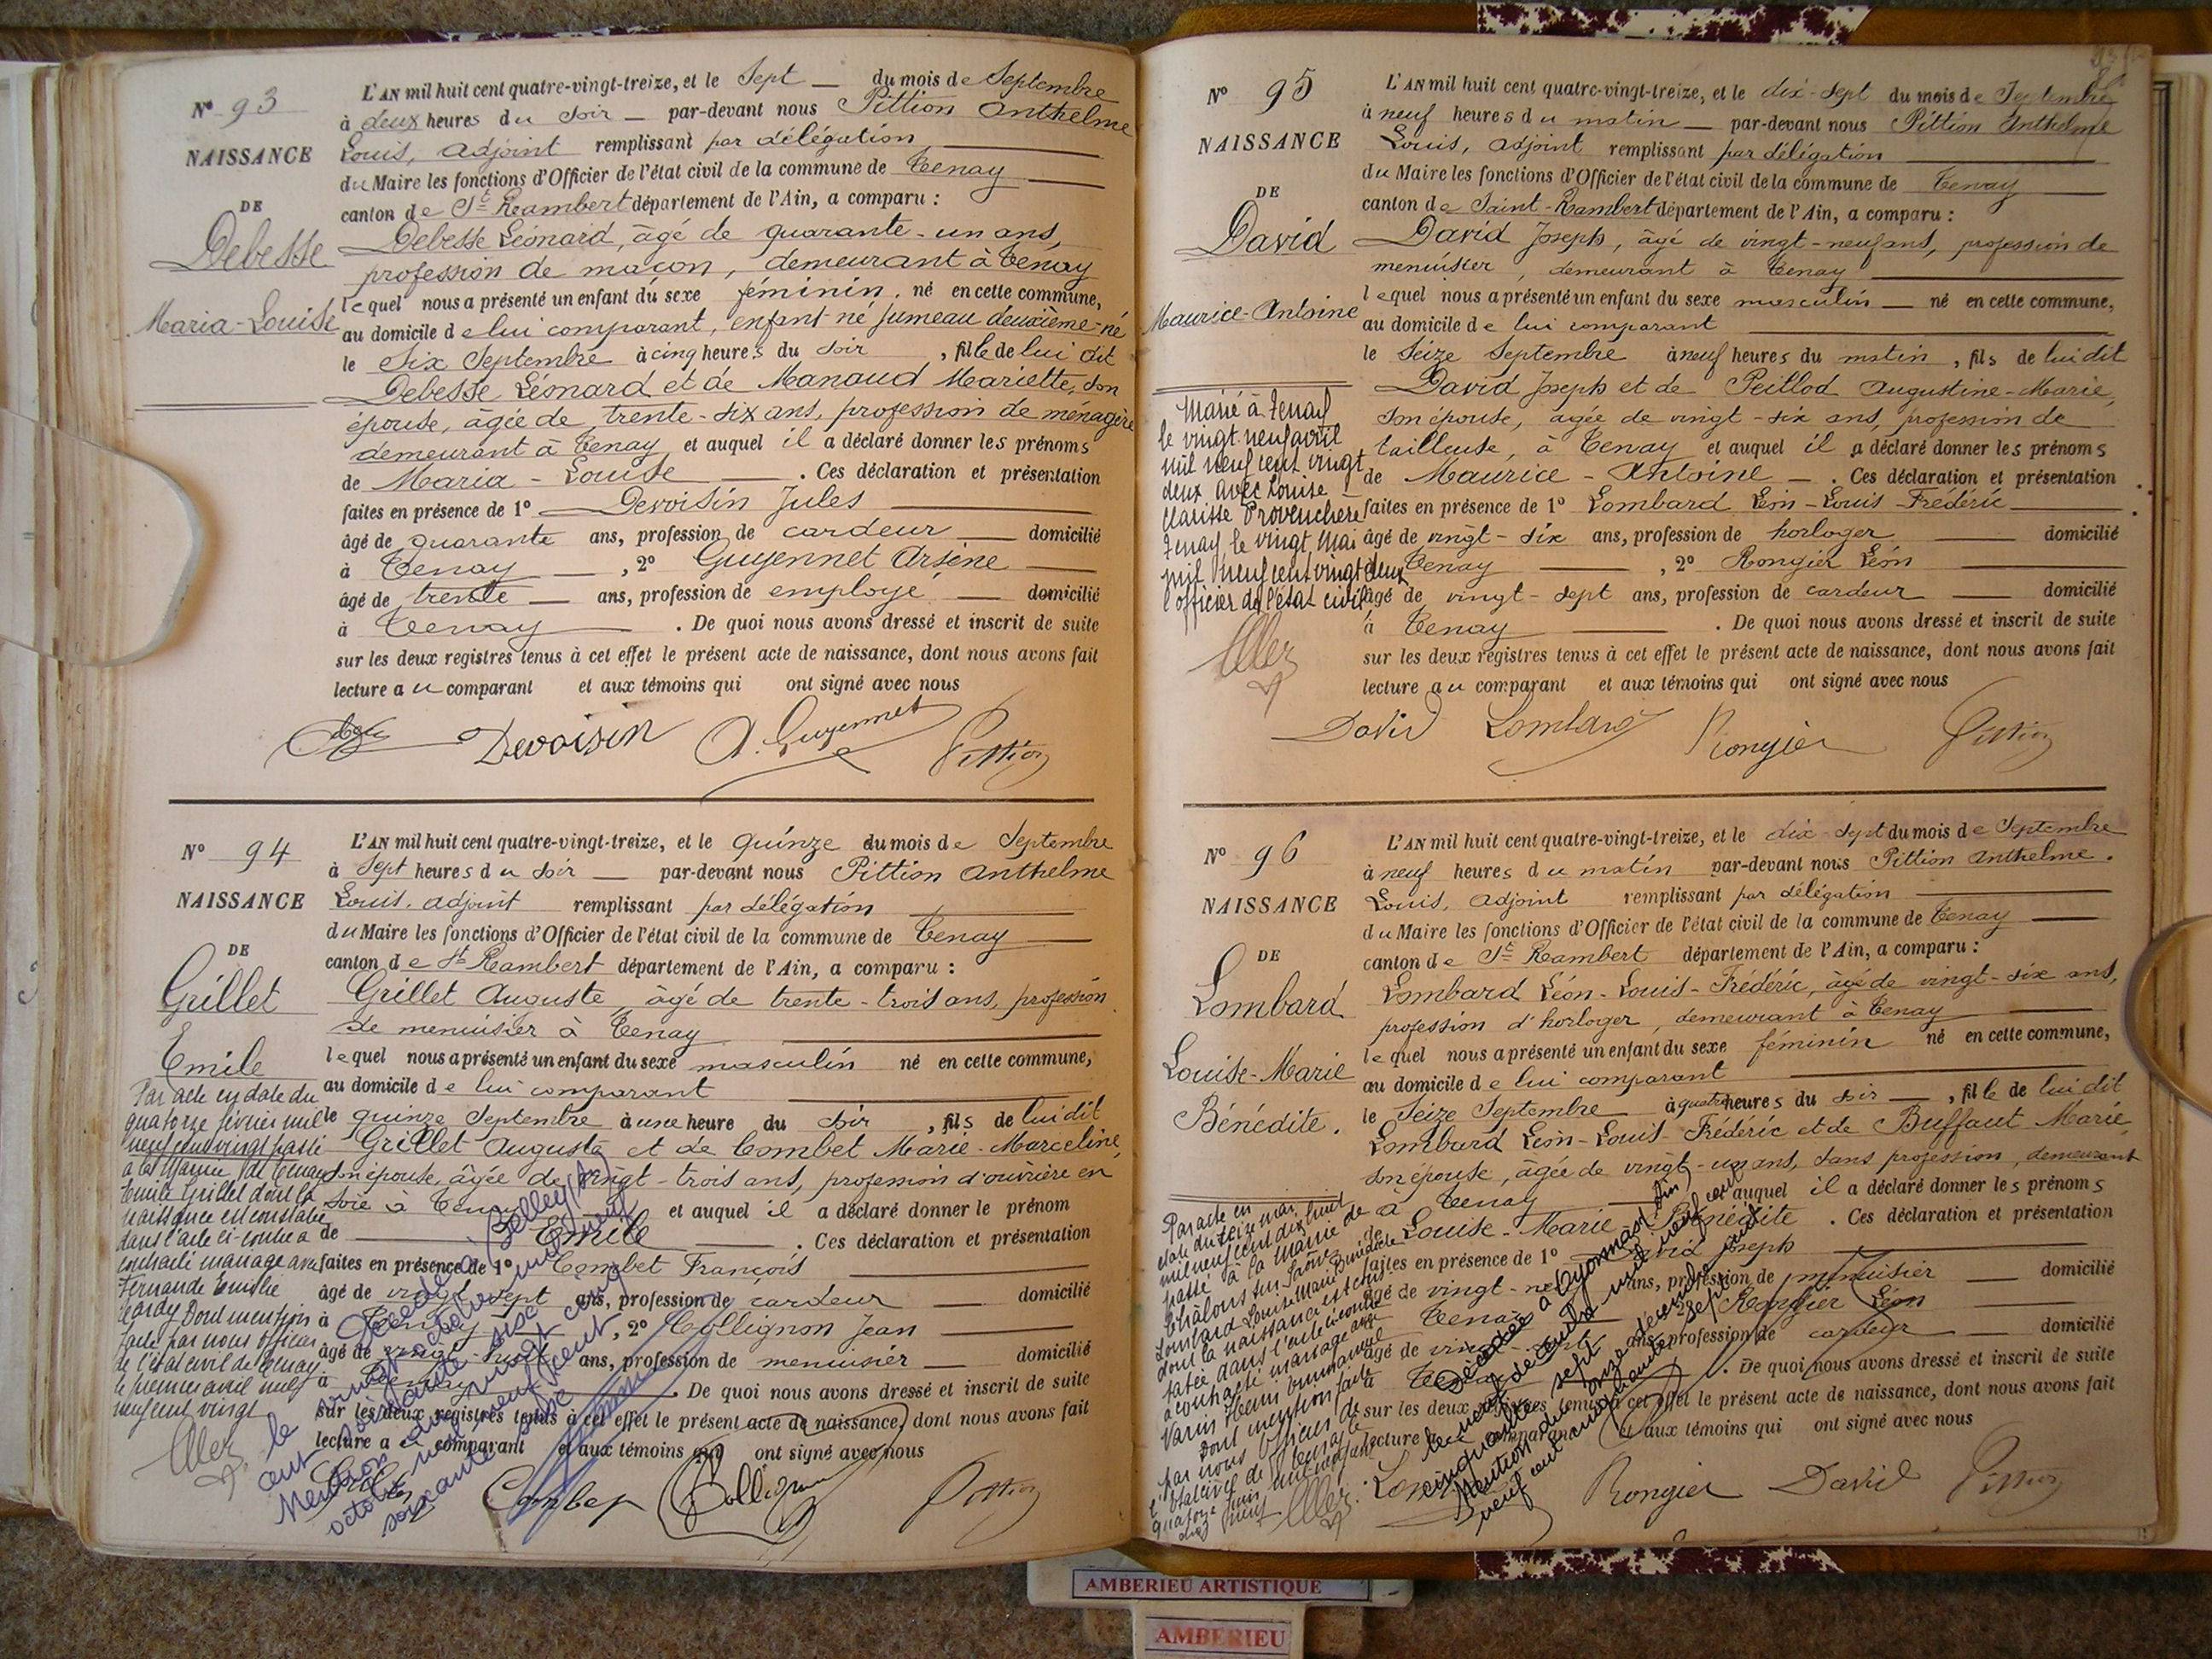 N° 93
NAISSANCE
DE
Debesse
Maria-Louise
L'AN mil huit cent quatre-vingt-treize, et le Sept du mois de Septembre
à deux heures du soir par-devant nous Pittion Anthelme
Louis, adjoint remplissant par délégation
du Maire les fonctions d'Officier de l'état civil de la commune de Tenay
canton de St Rambert département de l'Ain, a comparu :
Debesse Léonard, âgé de quarante-un ans,
profession de maçon, demeurant à Tenay
lequel nous a présenté un enfant du sexe féminin, né en cette commune,
au domicile de lui comparant, enfant né jumeau deuxième-né
le Six Septembre à cinq heures du soir, fille de lui dit
Debesse Léonard et de Manaud Mariette, son
épouse, âgée de trente-six ans, profession de ménagère
demeurant à Tenay et auquel il a déclaré donner les prénoms
de Maria-Louise. Ces déclaration et présentation
faites en présence de 1° Devoisin Jules
âgé de quarante ans, profession de cardeur domicilié
à Tenay, 2° Guyennet Arsène
âgé de trente ans, profession de employé domicilié
à Tenay. De quoi nous avons dressé et inscrit de suite
sur les deux registres tenus à cet effet le présent acte de naissance, dont nous avons fait
lecture au comparant et aux témoins qui ont signé avec nous
Devoisin A. Guyennet Pittion
N° 94
NAISSANCE
DE
Grillet
Emile
L'AN mil huit cent quatre-vingt-treize, et le quinze du mois de Septembre
à Sept heures du soir par-devant nous Pittion Anthelme
Louis, adjoint remplissant par délégation
du Maire les fonctions d'Officier de l'état civil de la commune de Tenay
canton de St Rambert département de l'Ain, a comparu :
Grillet Auguste, âgé de trente-trois ans, profession
de menuisier à Tenay
lequel nous a présenté un enfant du sexe masculin né en cette commune,
au domicile de lui comparant
le quinze Septembre à une heure du soir, fils de lui dit
Grillet Auguste et de Combet Marie-Marceline,
son épouse, âgée de vingt-trois ans, profession d'ouvrière en
soie à Tenay et auquel il a déclaré donner le prénom
de Emile. Ces déclaration et présentation
faites en présence de 1° Combet François
âgé de vingt-sept ans, profession de cardeur domicilié
à Tenay, 2° Collignon Jean
âgé de vingt-huit ans, profession de menuisier domicilié
à Tenay. De quoi nous avons dressé et inscrit de suite
sur les deux registres tenus à cet effet le présent acte de naissance, dont nous avons fait
lecture au comparant et aux témoins qui ont signé avec nous
Grillet Combet Collignon Pittion
Par acte en date du
quatorze février mil
neuf cent vingt passé
à la Mairie de Tenay
Emile Grillet dont la
naissance est constatée
dans l'acte ci-contre a
contracté mariage avec
Fernande Emilie
Dont mention
faite par nous officier
de l'état civil de Tenay
le premier avril mil
neuf cent vingt
Décédé à Belley (Ain)
le vingt octobre mil neuf
cent soixante six
Mention du vingt cinq
octobre mil neuf cent
soixante six
N° 95
NAISSANCE
DE
David
Maurice-Antoine
L'AN mil huit cent quatre-vingt-treize, et le dix-sept du mois de Septembre
à neuf heures du matin par-devant nous Pittion Anthelme
Louis, adjoint remplissant par délégation
du Maire les fonctions d'Officier de l'état civil de la commune de Tenay
canton de Saint-Rambert département de l'Ain, a comparu :
David Joseph, âgé de vingt-neuf ans, profession de
menuisier, demeurant à Tenay
lequel nous a présenté un enfant du sexe masculin né en cette commune,
au domicile de lui comparant
le Seize Septembre à neuf heures du matin, fils de lui dit
David Joseph et de Peillod Augustine-Marie,
son épouse, âgée de vingt-six ans, profession de
tailleuse, à Tenay et auquel il a déclaré donner les prénoms
de Maurice-Antoine. Ces déclaration et présentation
faites en présence de 1° Lombard Léon-Louis-Frédéric
âgé de vingt-six ans, profession de horloger domicilié
Tenay, 2° Rongier Léon
âgé de vingt-sept ans, profession de cardeur domicilié
à Tenay. De quoi nous avons dressé et inscrit de suite
sur les deux registres tenus à cet effet le présent acte de naissance, dont nous avons fait
lecture au comparant et aux témoins qui ont signé avec nous
David Lombard Rongier Pittion
Marié à Tenay
le vingt neuf avril
mil neuf cent vingt
deux avec Louise
Clarisse Provenchere
Tenay, le vingt Mai
mil neuf cent vingt deux
l'officier de l'état civil
N° 96
NAISSANCE
DE
Lombard
Louise-Marie
Bénédite.
L'AN mil huit cent quatre-vingt-treize, et le dix-sept du mois de Septembre
à neuf heures du matin par-devant nous Pittion Anthelme.
Louis, adjoint remplissant par délégation
du Maire les fonctions d'Officier de l'état civil de la commune de Tenay
canton de St Rambert département de l'Ain, a comparu :
Lombard Léon-Louis-Frédéric, âgé de vingt-six ans,
profession d'horloger, demeurant à Tenay
lequel nous a présenté un enfant du sexe féminin né en cette commune,
au domicile de lui comparant
le Seize Septembre à quatre heures du soir, fille de lui dit
Lombard Léon-Louis-Frédéric et de Buffaut Marie
son épouse, âgée de vingt-un ans, sans profession, demeurant
à Tenay et auquel il a déclaré donner les prénoms
de Louise-Marie Bénédite. Ces déclaration et présentation
faites en présence de 1° David Joseph
âgé de vingt-neuf ans, profession de menuisier domicilié
Tenay 2° Rongier Léon
âgé de vingt-sept ans, profession de cardeur domicilié
à Tenay. De quoi nous avons dressé et inscrit de suite
sur les deux registres tenus à cet effet le présent acte de naissance, dont nous avons fait
lecture au comparant et aux témoins qui ont signé avec nous
Rongier David Pittion
Par acte en
date du seize mai
mil neuf cent dix huit
passé à la Mairie de
Châlons sur Saône
Lombard Louise Marie Bénédicte
dont la naissance est cons-
tatée dans l'acte ci-contre
a contracté mariage avec
Dont mention faite
par nous Officier de
l'Etat civil de Tenay le
quatorze juin mil neuf cent
dix neuf
Décédée à Oyonnax (Ain)
le neuf décembre mil neuf cent
cinquante sept
Mention du onze décembre mil
neuf cent cinquante sept
AMBERIEU ARTISTIQUE
AMBERIEU